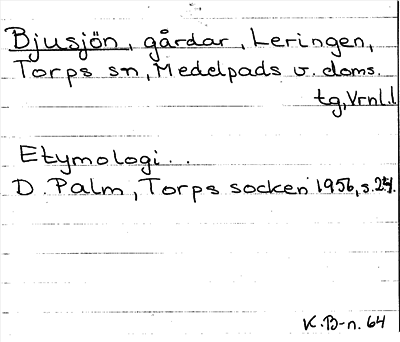 Bjusjön, gårdar, Leringen,
Torps sn, Medelpads v. doms.
tg, Vrnl.l
Etymologi..
D. Palm, Torps socken 1956, s.
K.B-n. 64